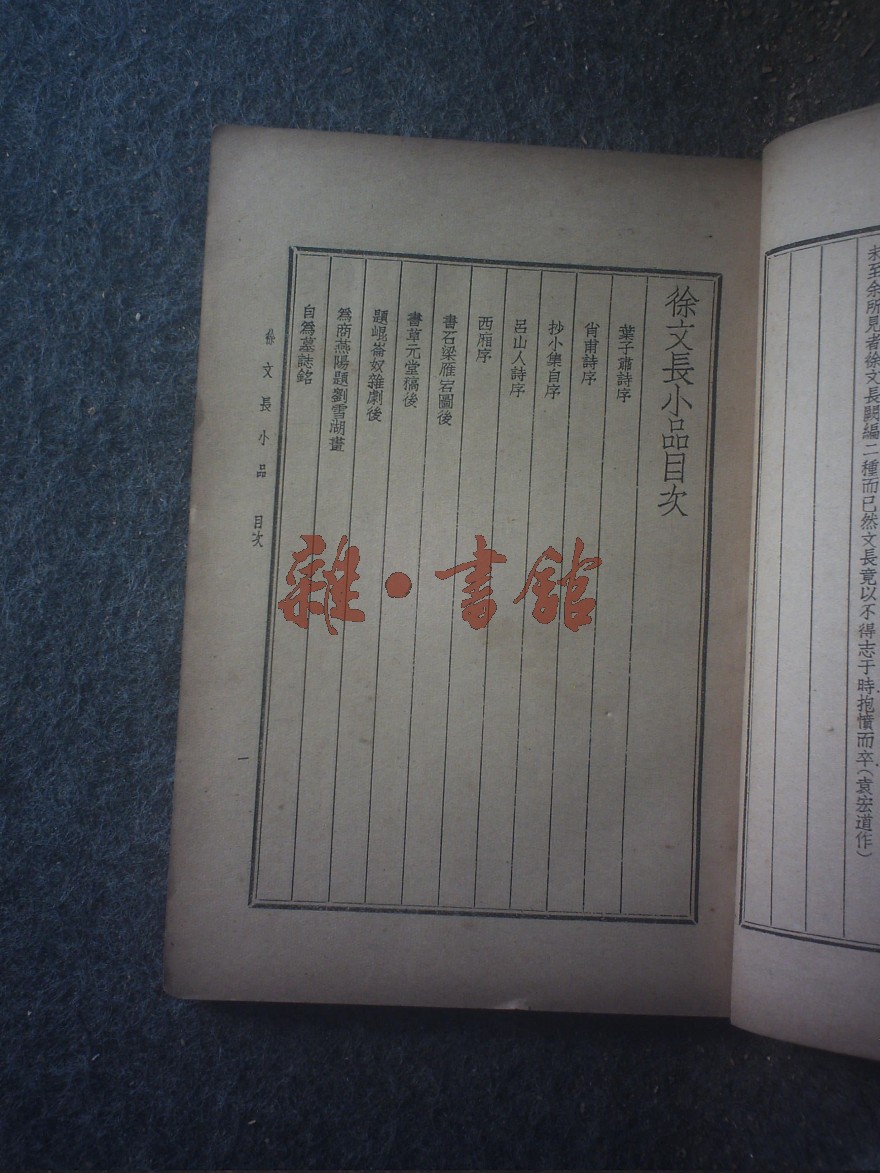 未至余所見者徐文長闕編二種而已然文長竟以不得志于時抱憤而卒(袁宏道作)
徐文長小品目次
葉子肅詩序
肖甫詩序
抄小集自序
呂山人詩序
西廂序
書石梁雁宕圖後
書草元堂稿後
題崐崙奴雜劇後
爲商燕陽題劉雪湖畫
自爲墓誌銘
徐文長小品 目次
一
雜·書館